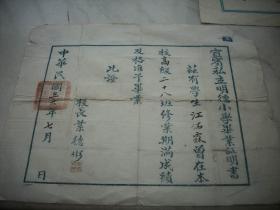 宜寧私立明德小學畢業証明書
茲有學生江佑霖曾在本
校高級二十八班修業期滿成績
及格准予畢業
此證
校長葉德彬
中華民國三十八年七月　日